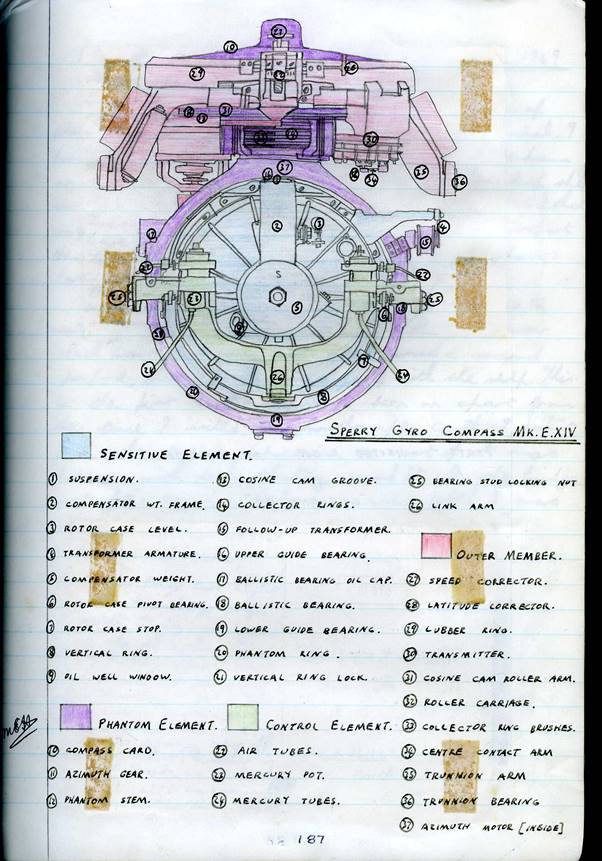 SPERRY GYRO COMPASS MK.E.XIV
SENSITIVE ELEMENT.
1 SUSPENSION.
2 COMPENSATOR WT. FRAME.
3 ROTOR CASE LEVEL.
4 TRANSFORMER ARMATURE.
5 COMPENSATOR WEIGHT.
6 ROTOR CASE PIVOT BEARING.
7 ROTOR CASE STOP.
8 VERTICAL RING.
9 OIL WELL WINDOW.
PHANTOM ELEMENT.
10 COMPASS CARD.
11 AZIMUTH GEAR.
12 PHANTOM STEM.
13 COSINE CAM GROOVE.
14 COLLECTOR RINGS.
15 FOLLOW-UP TRANSFORMER.
16 UPPER GUIDE BEARING.
17 BALLISTIC BEARING OIL CAP.
18 BALLISTIC BEARING.
19 LOWER GUIDE BEARING.
20 PHANTOM RING.
21 VERTICAL RING LOCK.
CONTROL ELEMENT.
22 AIR TUBES.
23 MERCURY POT.
24 MERCURY TUBES.
25 BEARING STUD LOCKING NUT
26 LINK ARM
OUTER MEMBER.
27 SPEED CORRECTOR.
28 LATITUDE CORRECTOR.
29 LUBBER RING.
30 TRANSMITTER.
31 COSINE CAM ROLLER ARM.
32 ROLLER CARRIAGE.
33 COLLECTOR RING BRUSHES.
34 CENTRE CONTACT ARM
35 TRUNNION ARM
36 TRUNNION BEARING
37 AZIMUTH MOTOR [INSIDE]
187